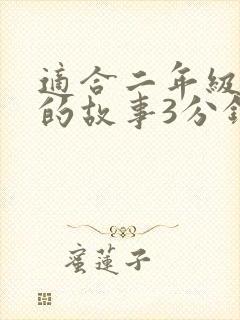 適合二年級
的故事3分鐘
蜜蓮子